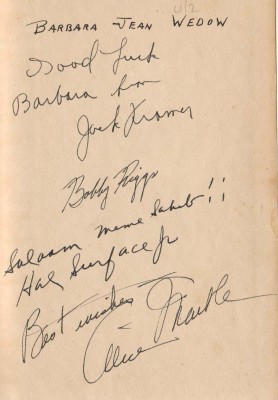 BARBARA JEAN WEDOW
Good Luck
Barbara from
Jack Kramer
Bobby Riggs
Salaam meme Sahib!!
Hal Surface Jr
Best wishes
Alice Marble